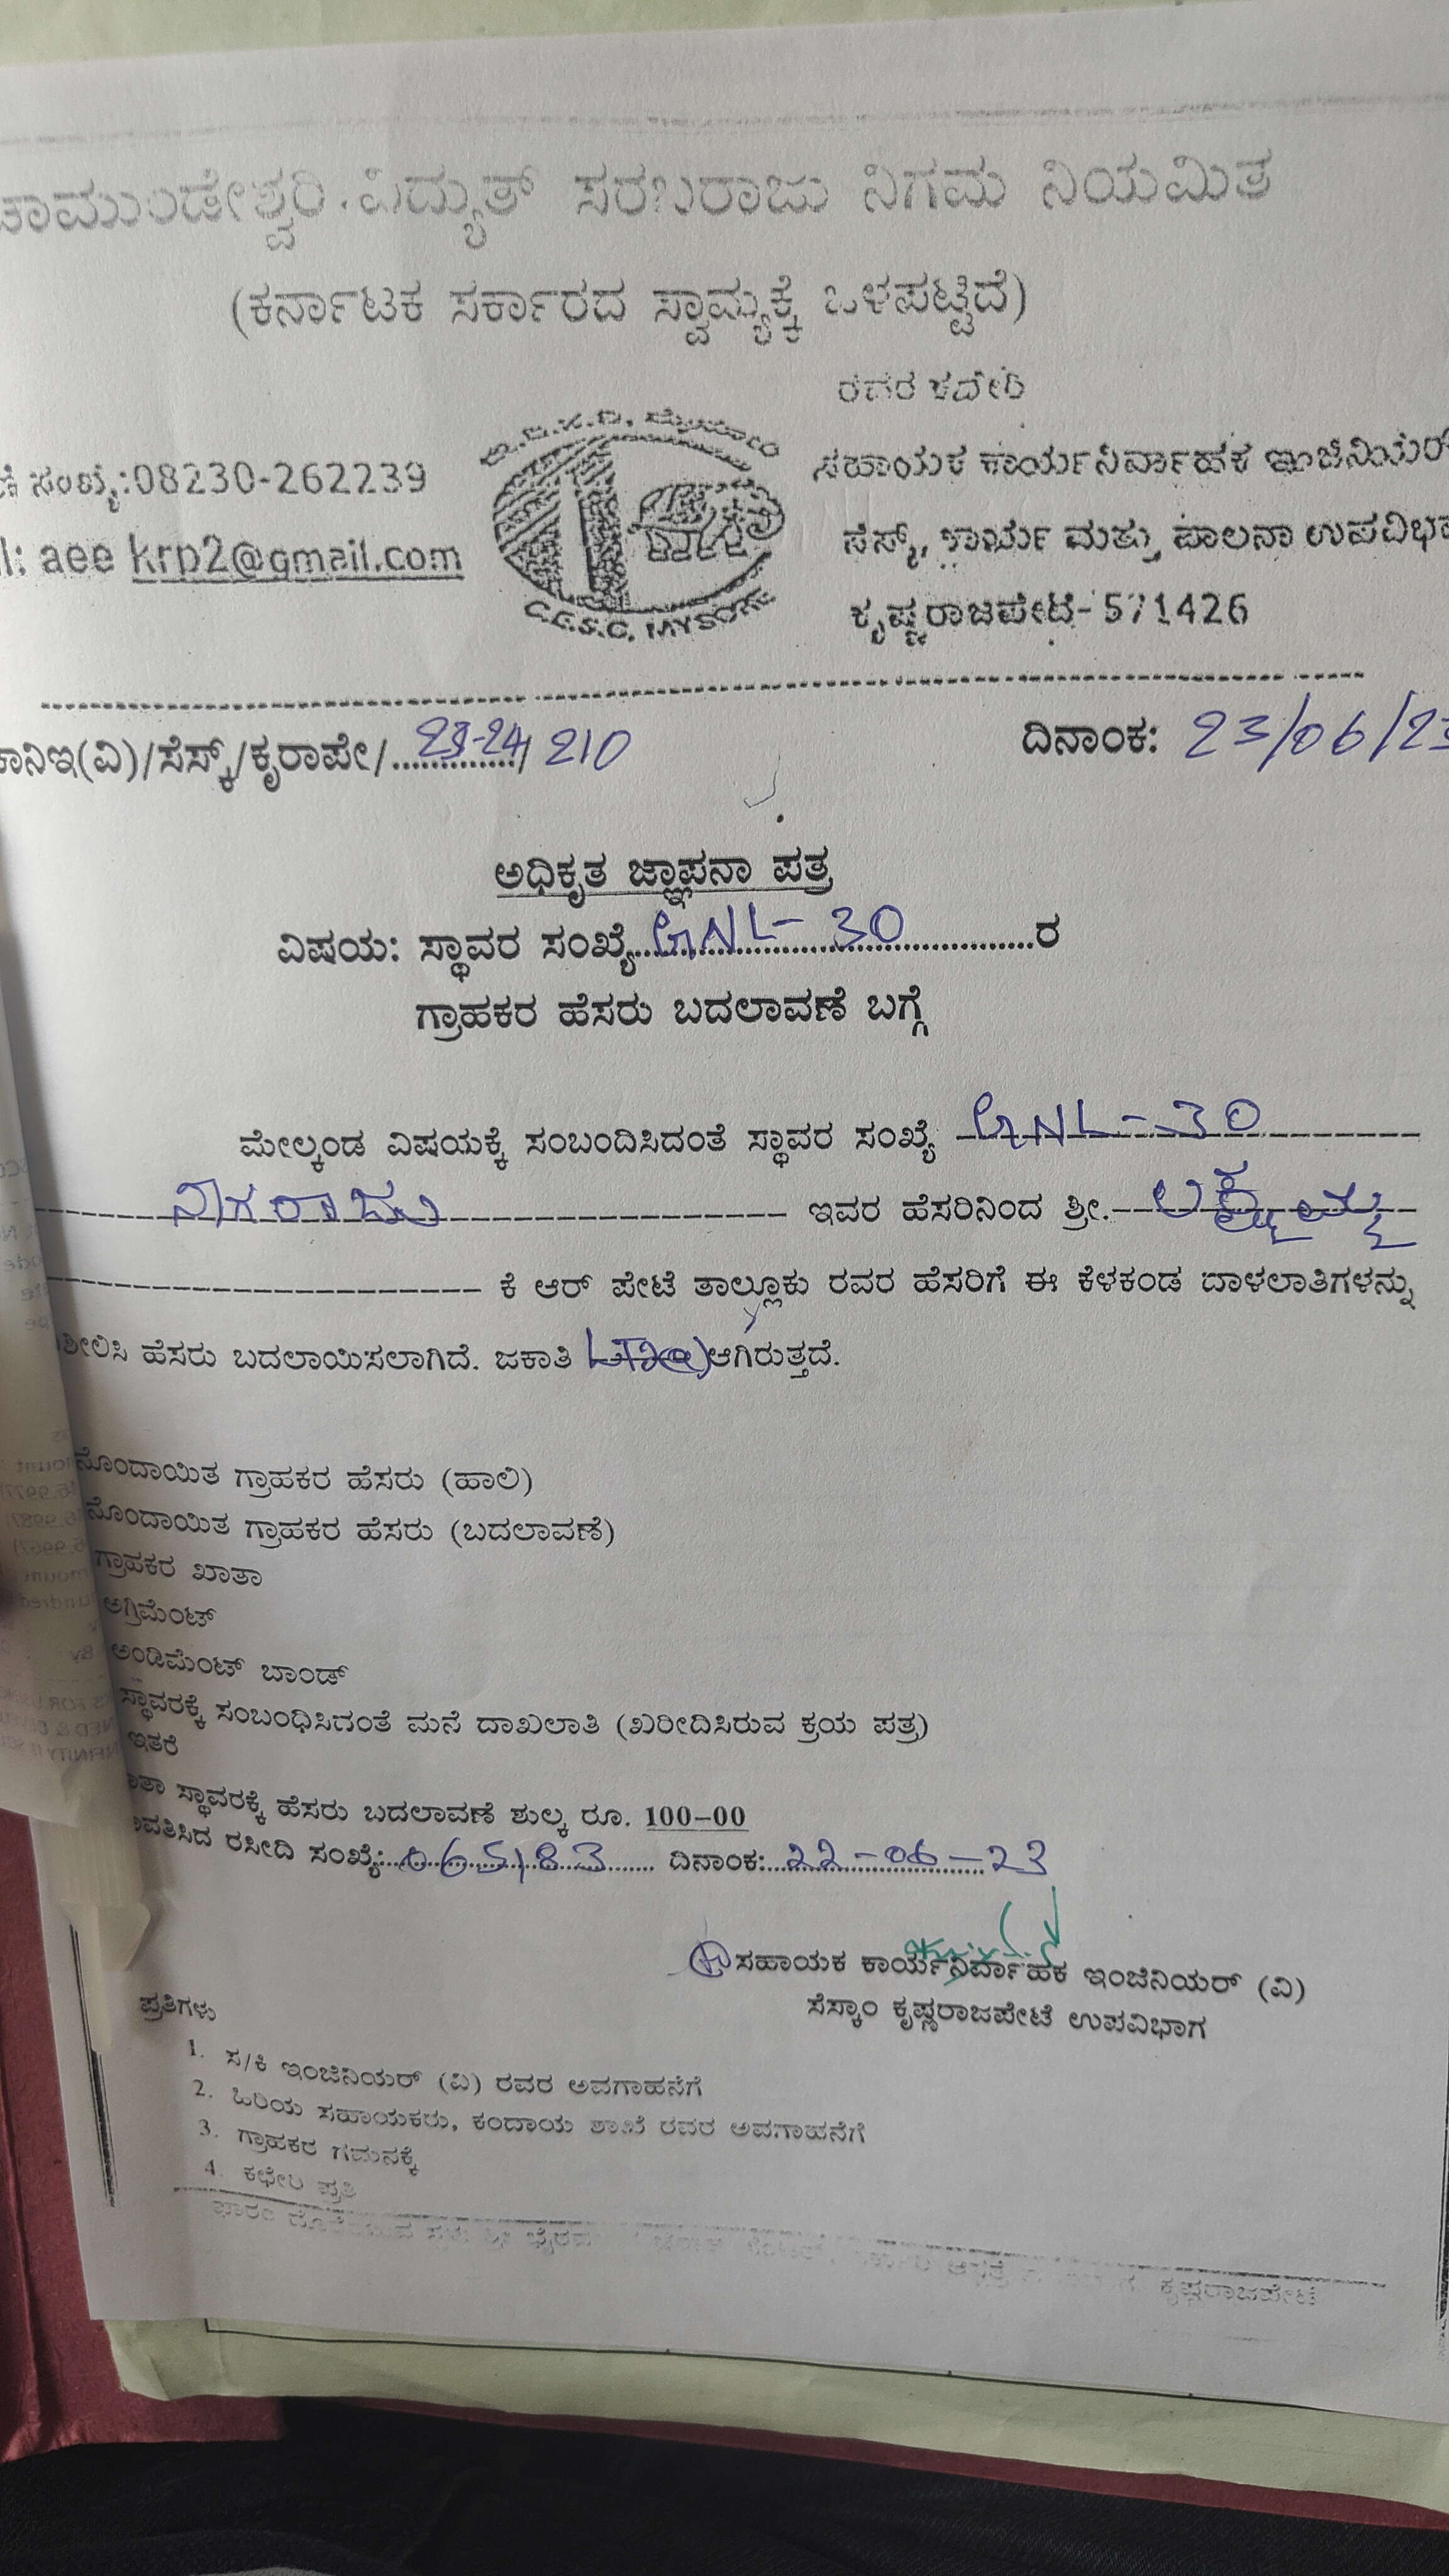 ಚಾಮುಂಡೇಶ್ವರಿ ವಿದ್ಯುತ್ ಸರಬರಾಜು ನಿಗಮ ನಿಯಮಿತ
(ಕರ್ನಾಟಕ ಸರ್ಕಾರದ ಸ್ವಾಮ್ಯಕ್ಕೆ ಒಳಪಟ್ಟಿದೆ)
ರವರ ಕಛೇರಿ
ಸಂಖ್ಯೆ:08230-262239
ಸಹಾಯಕ ಕಾರ್ಯನಿರ್ವಾಹಕ ಇಂಜಿನಿಯರ್
l: aee krp2@gmail.com
ಸೆಸ್ಕ್, ಕಾರ್ಯ ಮತ್ತು ಪಾಲನಾ ಉಪವಿಭಾ
C.E.S.C, MYSORE
ಕೃಷ್ಣರಾಜಪೇಟೆ- 571426
ಕಾನಿಇ(ವಿ)/ಸೆಸ್ಕ್/ಕೃರಾಪೇ/..23-24../ 210 ದಿನಾಂಕ: 23/06/23
ಅಧಿಕೃತ ಜ್ಞಾಪನಾ ಪತ್ರ
ವಿಷಯ: ಸ್ಥಾವರ ಸಂಖ್ಯೆ..GNL-30..ರ
ಗ್ರಾಹಕರ ಹೆಸರು ಬದಲಾವಣೆ ಬಗ್ಗೆ
ಮೇಲ್ಕಂಡ ವಿಷಯಕ್ಕೆ ಸಂಬಂದಿಸಿದಂತೆ ಸ್ಥಾವರ ಸಂಖ್ಯೆ GNL-30
ನಾಗರಾಜು ಇವರ ಹೆಸರಿನಿಂದ ಶ್ರೀ. ಲಕ್ಷ್ಮಮ್ಮ
ಕೆ ಆರ್ ಪೇಟೆ ತಾಲ್ಲೂಕು ರವರ ಹೆಸರಿಗೆ ಈ ಕೆಳಕಂಡ ದಾಳಲಾತಿಗಳನ್ನು
ಶೀಲಿಸಿ ಹೆಸರು ಬದಲಾಯಿಸಲಾಗಿದೆ. ಜಕಾತಿ ಆಗಿರುತ್ತದೆ.
ನೊಂದಾಯಿತ ಗ್ರಾಹಕರ ಹೆಸರು (ಹಾಲಿ)
ನೊಂದಾಯಿತ ಗ್ರಾಹಕರ ಹೆಸರು (ಬದಲಾವಣೆ)
ಗ್ರಾಹಕರ ಖಾತಾ
ಅಗ್ರಿಮೆಂಟ್
ಅಂಡಿಮೆಂಟ್ ಬಾಂಡ್
ಸ್ಥಾವರಕ್ಕೆ ಸಂಬಂಧಿಸಿದಂತೆ ಮನೆ ದಾಖಲಾತಿ (ಖರೀದಿಸಿರುವ ಕ್ರಯ ಪತ್ರ)
ಇತರೆ
ಸ್ಥಾವರಕ್ಕೆ ಹೆಸರು ಬದಲಾವಣೆ ಶುಲ್ಕ ರೂ. 100-00
ಪಾವತಿಸಿದ ರಸೀದಿ ಸಂಖ್ಯೆ:..065183.. ದಿನಾಂಕ:..22-06-23
ಸಹಾಯಕ ಕಾರ್ಯನಿರ್ವಾಹಕ ಇಂಜಿನಿಯರ್ (ವಿ)
ಸೆಸ್ಕಾಂ ಕೃಷ್ಣರಾಜಪೇಟೆ ಉಪವಿಭಾಗ
ಪ್ರತಿಗಳು
1. ಸ/ಕಿ ಇಂಜಿನಿಯರ್ (ವಿ) ರವರ ಅವಗಾಹನೆಗೆ
2. ಹಿರಿಯ ಸಹಾಯಕರು, ಕಂದಾಯ ಶಾಖೆ ರವರ ಅವಗಾಹನೆಗೆ
3. ಗ್ರಾಹಕರ ಗಮನಕ್ಕೆ
4. ಕಛೇರಿ ಪ್ರತಿ
ಕೃಷ್ಣರಾಜಪೇಟೆ